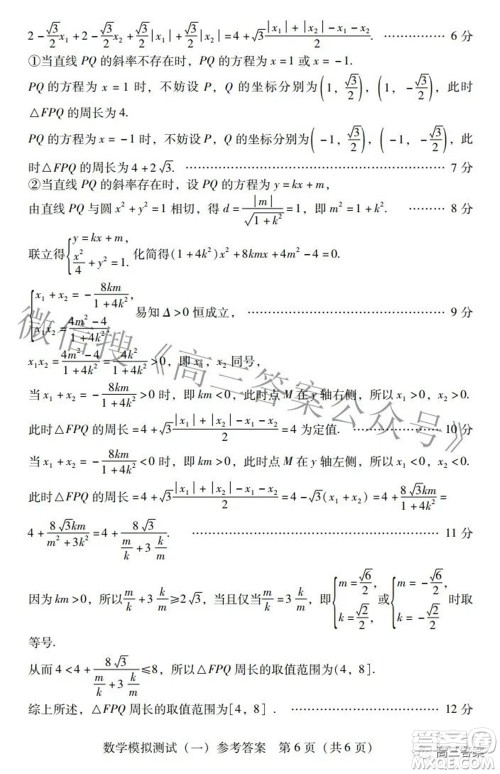 2-\frac{\sqrt{3}}{2}x_1+2-\frac{\sqrt{3}}{2}x_2+\frac{\sqrt{3}}{2}|x_1|+\frac{\sqrt{3}}{2}|x_2|=4+\sqrt{3}\frac{|x_1|+|x_2|-x_1-x_2}{2}. ………… 6 分
①当直线 PQ 的斜率不存在时，PQ 的方程为 x=1 或 x=-1.
PQ 的方程为 x=1 时，不妨设 P，Q 的坐标分别为 (1, \frac{\sqrt{3}}{2})，(1, -\frac{\sqrt{3}}{2})，此时
△FPQ 的周长为 4.
PQ 的方程为 x=-1 时，不妨设 P，Q 的坐标分别为 (-1, \frac{\sqrt{3}}{2})，(-1, -\frac{\sqrt{3}}{2})，此
时△FPQ 的周长为 4+2\sqrt{3}. ………… 7 分
②当直线 PQ 的斜率存在时，设 PQ 的方程为 y=kx+m，
由直线 PQ 与圆 x^2+y^2=1 相切，得 d=\frac{|m|}{\sqrt{1+k^2}}=1，即 m^2=1+k^2. ………… 8 分
联立得 \begin{cases} y=kx+m, \\ \frac{x^2}{4}+y^2=1. \end{cases} 化简得 (1+4k^2)x^2+8kmx+4m^2-4=0.
\begin{cases} x_1+x_2=-\frac{8km}{1+4k^2}, \\ x_1x_2=\frac{4m^2-4}{1+4k^2} \end{cases} 易知 Δ>0 恒成立， ………… 9 分
x_1x_2=\frac{4m^2-4}{1+4k^2}=\frac{4k^2}{1+4k^2}>0，即 x_1，x_2 同号，
当 x_1+x_2=-\frac{8km}{1+4k^2}>0 时，即 km<0，此时点 M 在 y 轴右侧，所以 x_1>0，x_2>0.
此时△FPQ 的周长=4+\sqrt{3}\frac{|x_1|+|x_2|-x_1-x_2}{2}=4 为定值. ………… 10 分
当 x_1+x_2=-\frac{8km}{1+4k^2}<0 时，即 km>0，此时点 M 在 y 轴左侧，所以 x_1<0，x_2<0.
此时△FPQ 的周长=4+\sqrt{3}\frac{|x_1|+|x_2|-x_1-x_2}{2}=4-\sqrt{3}(x_1+x_2)=4+\frac{8\sqrt{3}km}{1+4k^2}=
4+\frac{8\sqrt{3}km}{m^2+3k^2}=4+\frac{8\sqrt{3}}{\frac{m}{k}+3\frac{k}{m}}. ………… 11 分
因为 km>0，所以 \frac{m}{k}+3\frac{k}{m}≥2\sqrt{3}，当且仅当 \frac{m}{k}=3\frac{k}{m}，即 \begin{cases} m=\frac{\sqrt{6}}{2} \\ k=\frac{\sqrt{2}}{2} \end{cases} 或 \begin{cases} m=-\frac{\sqrt{6}}{2} \\ k=-\frac{\sqrt{2}}{2} \end{cases} 时取
等号.
从而 4<4+\frac{8\sqrt{3}}{\frac{m}{k}+3\frac{k}{m}}≤8，所以△FPQ 周长的取值范围为 (4, 8].
综上所述，△FPQ 周长的取值范围为 [4, 8]. ………… 12 分
数学模拟测试（一）参考答案 第 6 页（共 6 页）
微信搜《高三答案公众号》
高三答案